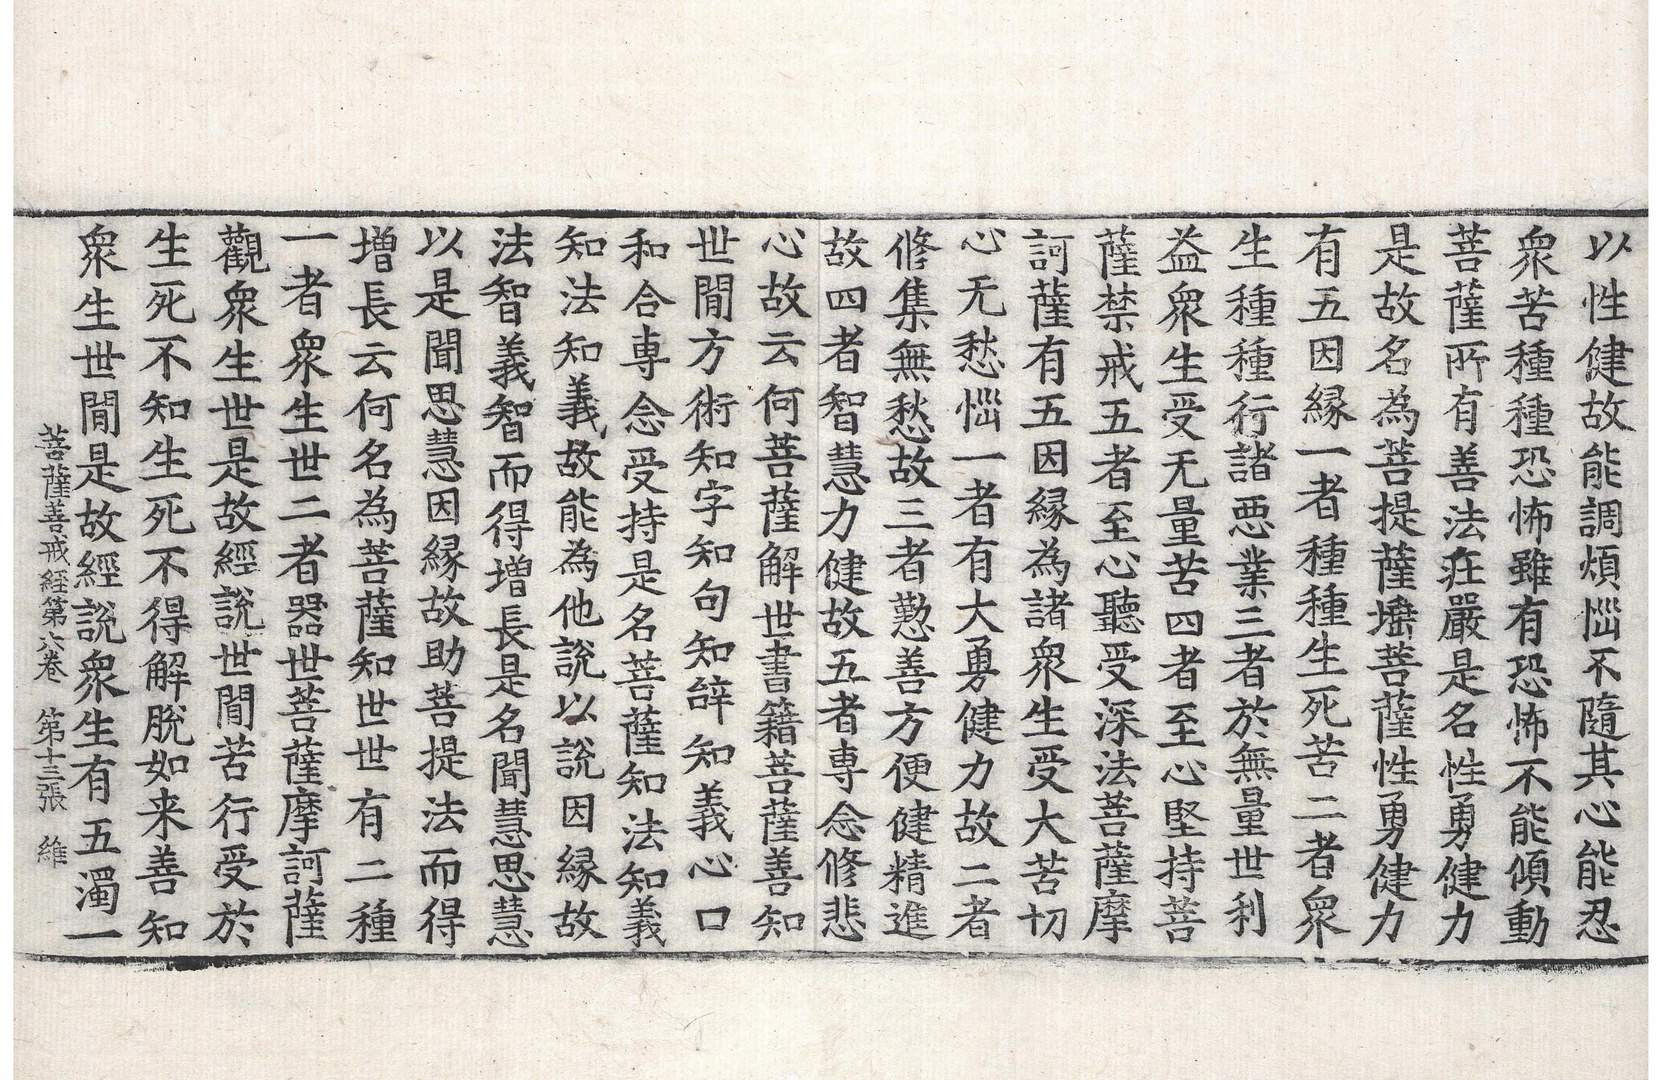 以性健故能調煩惱不隨其心能忍
衆苦種種恐怖雖有恐怖不能傾動
菩薩所有善法莊嚴是名性勇健力
是故名為菩提薩埵菩薩性勇健力
有五因緣一者種種生死苦二者衆
生種種行諸惡業三者於無量世利
益衆生受无量苦四者至心堅持菩
薩禁戒五者至心聽受深法菩薩摩
訶薩有五因緣為諸衆生受大苦切
心无愁惱一者有大勇健力故二者
修集無愁故三者懃善方便健精進
故四者智慧力健故五者專念修悲
心故云何菩薩解世書籍菩薩善知
世間方術知字知句知辝知義心口
和合專念受持是名菩薩知法知義
知法知義故能為他說以說因緣故
法智義智而得增長是名聞慧思慧
以是聞思慧因緣故助菩提法而得
增長云何名為菩薩知世世有二種
一者衆生世二者器世菩薩摩訶薩
觀衆生世是故經說世間苦行受於
生死不知生死不得解脫如来善知
衆生世間是故經說衆生有五濁一
菩薩善戒經第六卷 第十三張 維